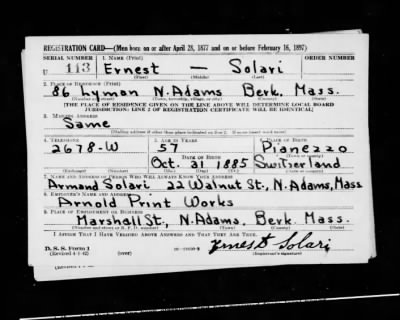 REGISTRATION CARD—(Men born on or after April 28, 1877 and on or before February 16, 1897)
SERIAL NUMBER 1. NAME (Print) ORDER NUMBER
U 113 Ernest — Solari
(First) (Middle) (Last)
2. PLACE OF RESIDENCE (Print)
86 Hyman N. Adams Berk. Mass.
(Number and street) (Town, township, village, or city) (County) (State)
[THE PLACE OF RESIDENCE GIVEN ON THE LINE ABOVE WILL DETERMINE LOCAL BOARD
JURISDICTION; LINE 2 OF REGISTRATION CERTIFICATE WILL BE IDENTICAL]
3. MAILING ADDRESS
Same
[Mailing address if other than place indicated on line 2. If same insert word same]
4. TELEPHONE 5. AGE IN YEARS 6. PLACE OF BIRTH
2678-W 57 Pianezzo
DATE OF BIRTH (Town or county)
Oct. 21 1885 Switserland
(Exchange) (Number) (Mo.) (Day) (Yr.) (State or country)
7. NAME AND ADDRESS OF PERSON WHO WILL ALWAYS KNOW YOUR ADDRESS
Armand Solari 22 Walnut St., N. Adams, Mass
8. EMPLOYER'S NAME AND ADDRESS
Arnold Print Works
9. PLACE OF EMPLOYMENT OR BUSINESS
Marshall St., N. Adams, Berk. Mass.
(Number and street or R. F. D. number) (Town) (County) (State)
I AFFIRM THAT I HAVE VERIFIED ABOVE ANSWERS AND THAT THEY ARE TRUE.
D. S. S. Form 1
(Revised 4-1-42) (over) Ernest Solari
(Registrant's signature)